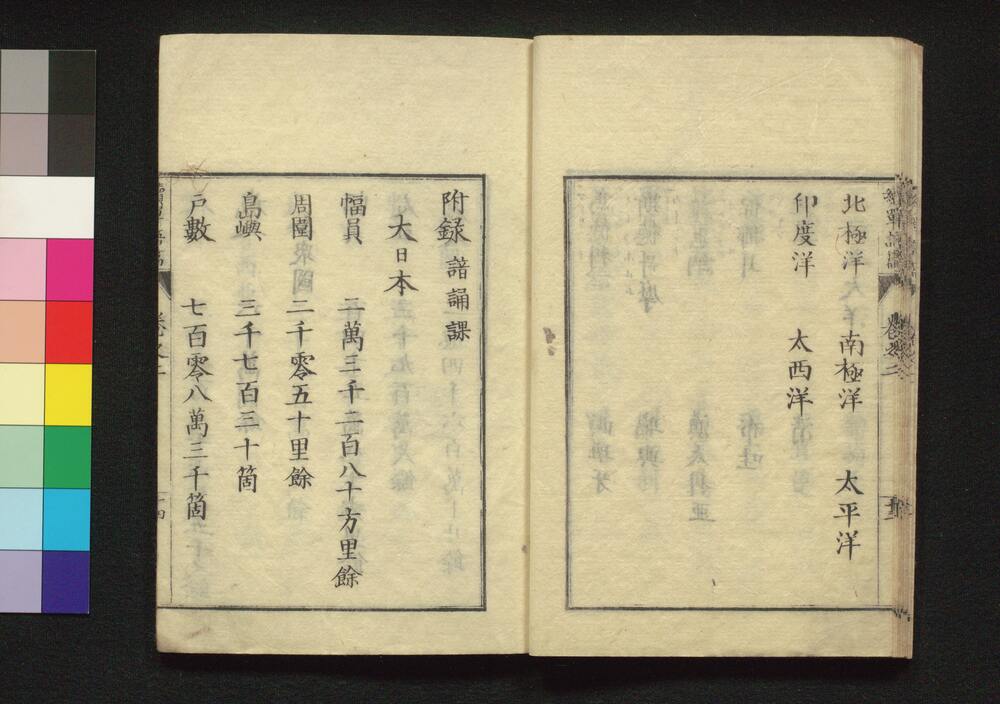 北極洋 南極洋 太平洋
印度洋 太西洋
附録 諳誦課
大日本
幅員 二萬三千二百八十方里餘
周圍 二千零五十里餘
島嶼 三千七百三十箇
戸數 七百零八萬三千箇
卷之二